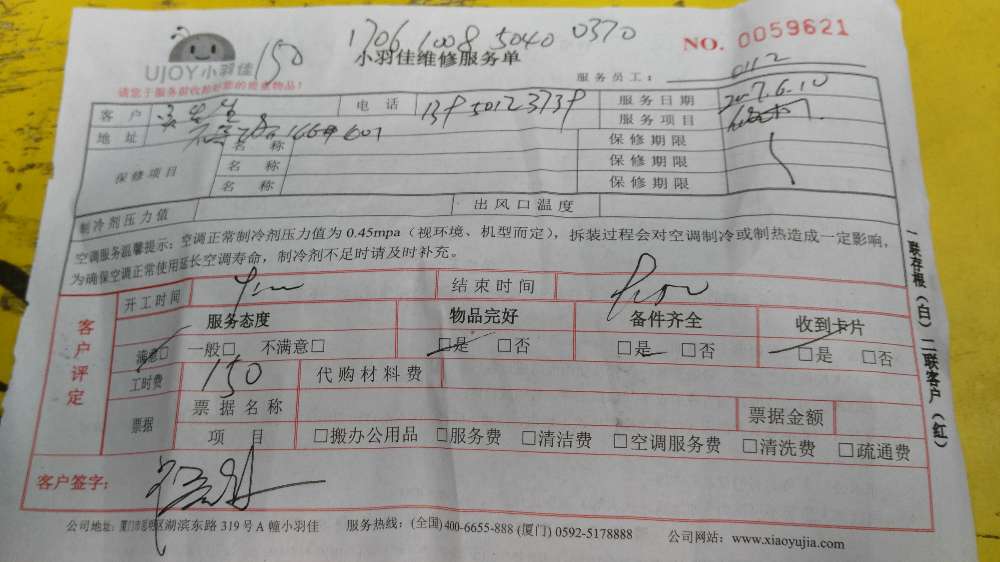 150 1706 1008 5040 0370
NO. 0059621
UJOY小羽佳
小羽佳维修服务单
服务员工： 0112
客 户 电 话 139 5012 3739 服务日期 2017.6.10
地 址 166# 601 服务项目
保修项目 名 称 保修期限
名 称 保修期限
名 称 保修期限
制冷剂压力值 出风口温度
空调服务温馨提示：空调正常制冷剂压力值为 0.45mpa（视环境、机型而定），拆装过程会对空调制冷或制热造成一定影响，
为确保空调正常使用延长空调寿命，制冷剂不足时请及时补充。
客户评定
开工时间 结束时间
服务态度 物品完好 备件齐全 收到卡片
满意□ 一般□ 不满意□ □是 □否 □是 □否 □是 □否
工时费 150 代购材料费
票据 票据名称 票据金额
项 目 □搬办公用品 □服务费 □清洁费 □空调服务费 □清洗费 □疏通费
客户签字：
公司地址: 湖滨东路 319 号 A 幢小羽佳 服务热线：(全国) 400-6655-888 (厦门) 0592-5178888 公司网站：www.xiaoyujia.com
一联存根（白）二联客户（红）